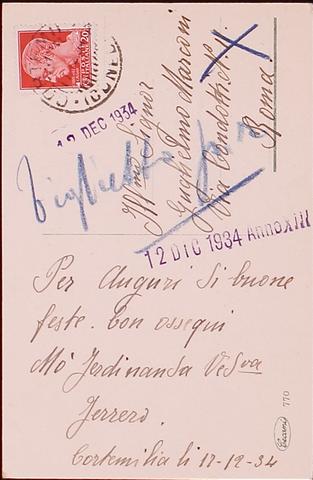 12 DEC 1934
Ill.mo Signor
Guglielmo Marconi
Via Condotti N. 11
Roma
Biglietto
12 DIC 1934 ANNO XIII
Per Auguri di buone
feste. Con ossequi
Ferdinanda Ved.va
Ferrero.
Cortemilia li 11-12-34
770